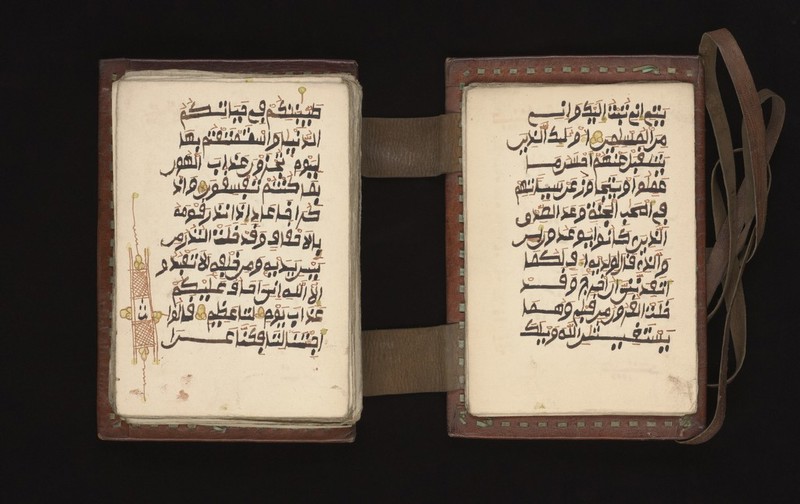 يتي اني تبت اليك واني
من المسلمين اولئك الذين
يتقبل عنهم احسن ما
عملوا ويتجاوز عن سياتهم
في اصحب الجنة وعد الصدق
الذي كانوا يوعدون
والذي قال لولديه اف لكما
اتعدنني ان اخرج وقد
خلت القرون من قبلي وهما
يستغيثن الله ويلك
طيبتكم في حياتكم
الدنيا واستمتعتم بها
ليوم تجزون عذاب الهون
بما كنتم تفسقون واذ
كر اخا عاد اذ انذر قومه
بالاحقاف وقد خلت النذر من
بين يديه ومن خلفه الا تعبدو
الا الله اني اخاف عليكم
عذاب يوم عظيم قالوا
اجئتنا لتافكنا عن ا